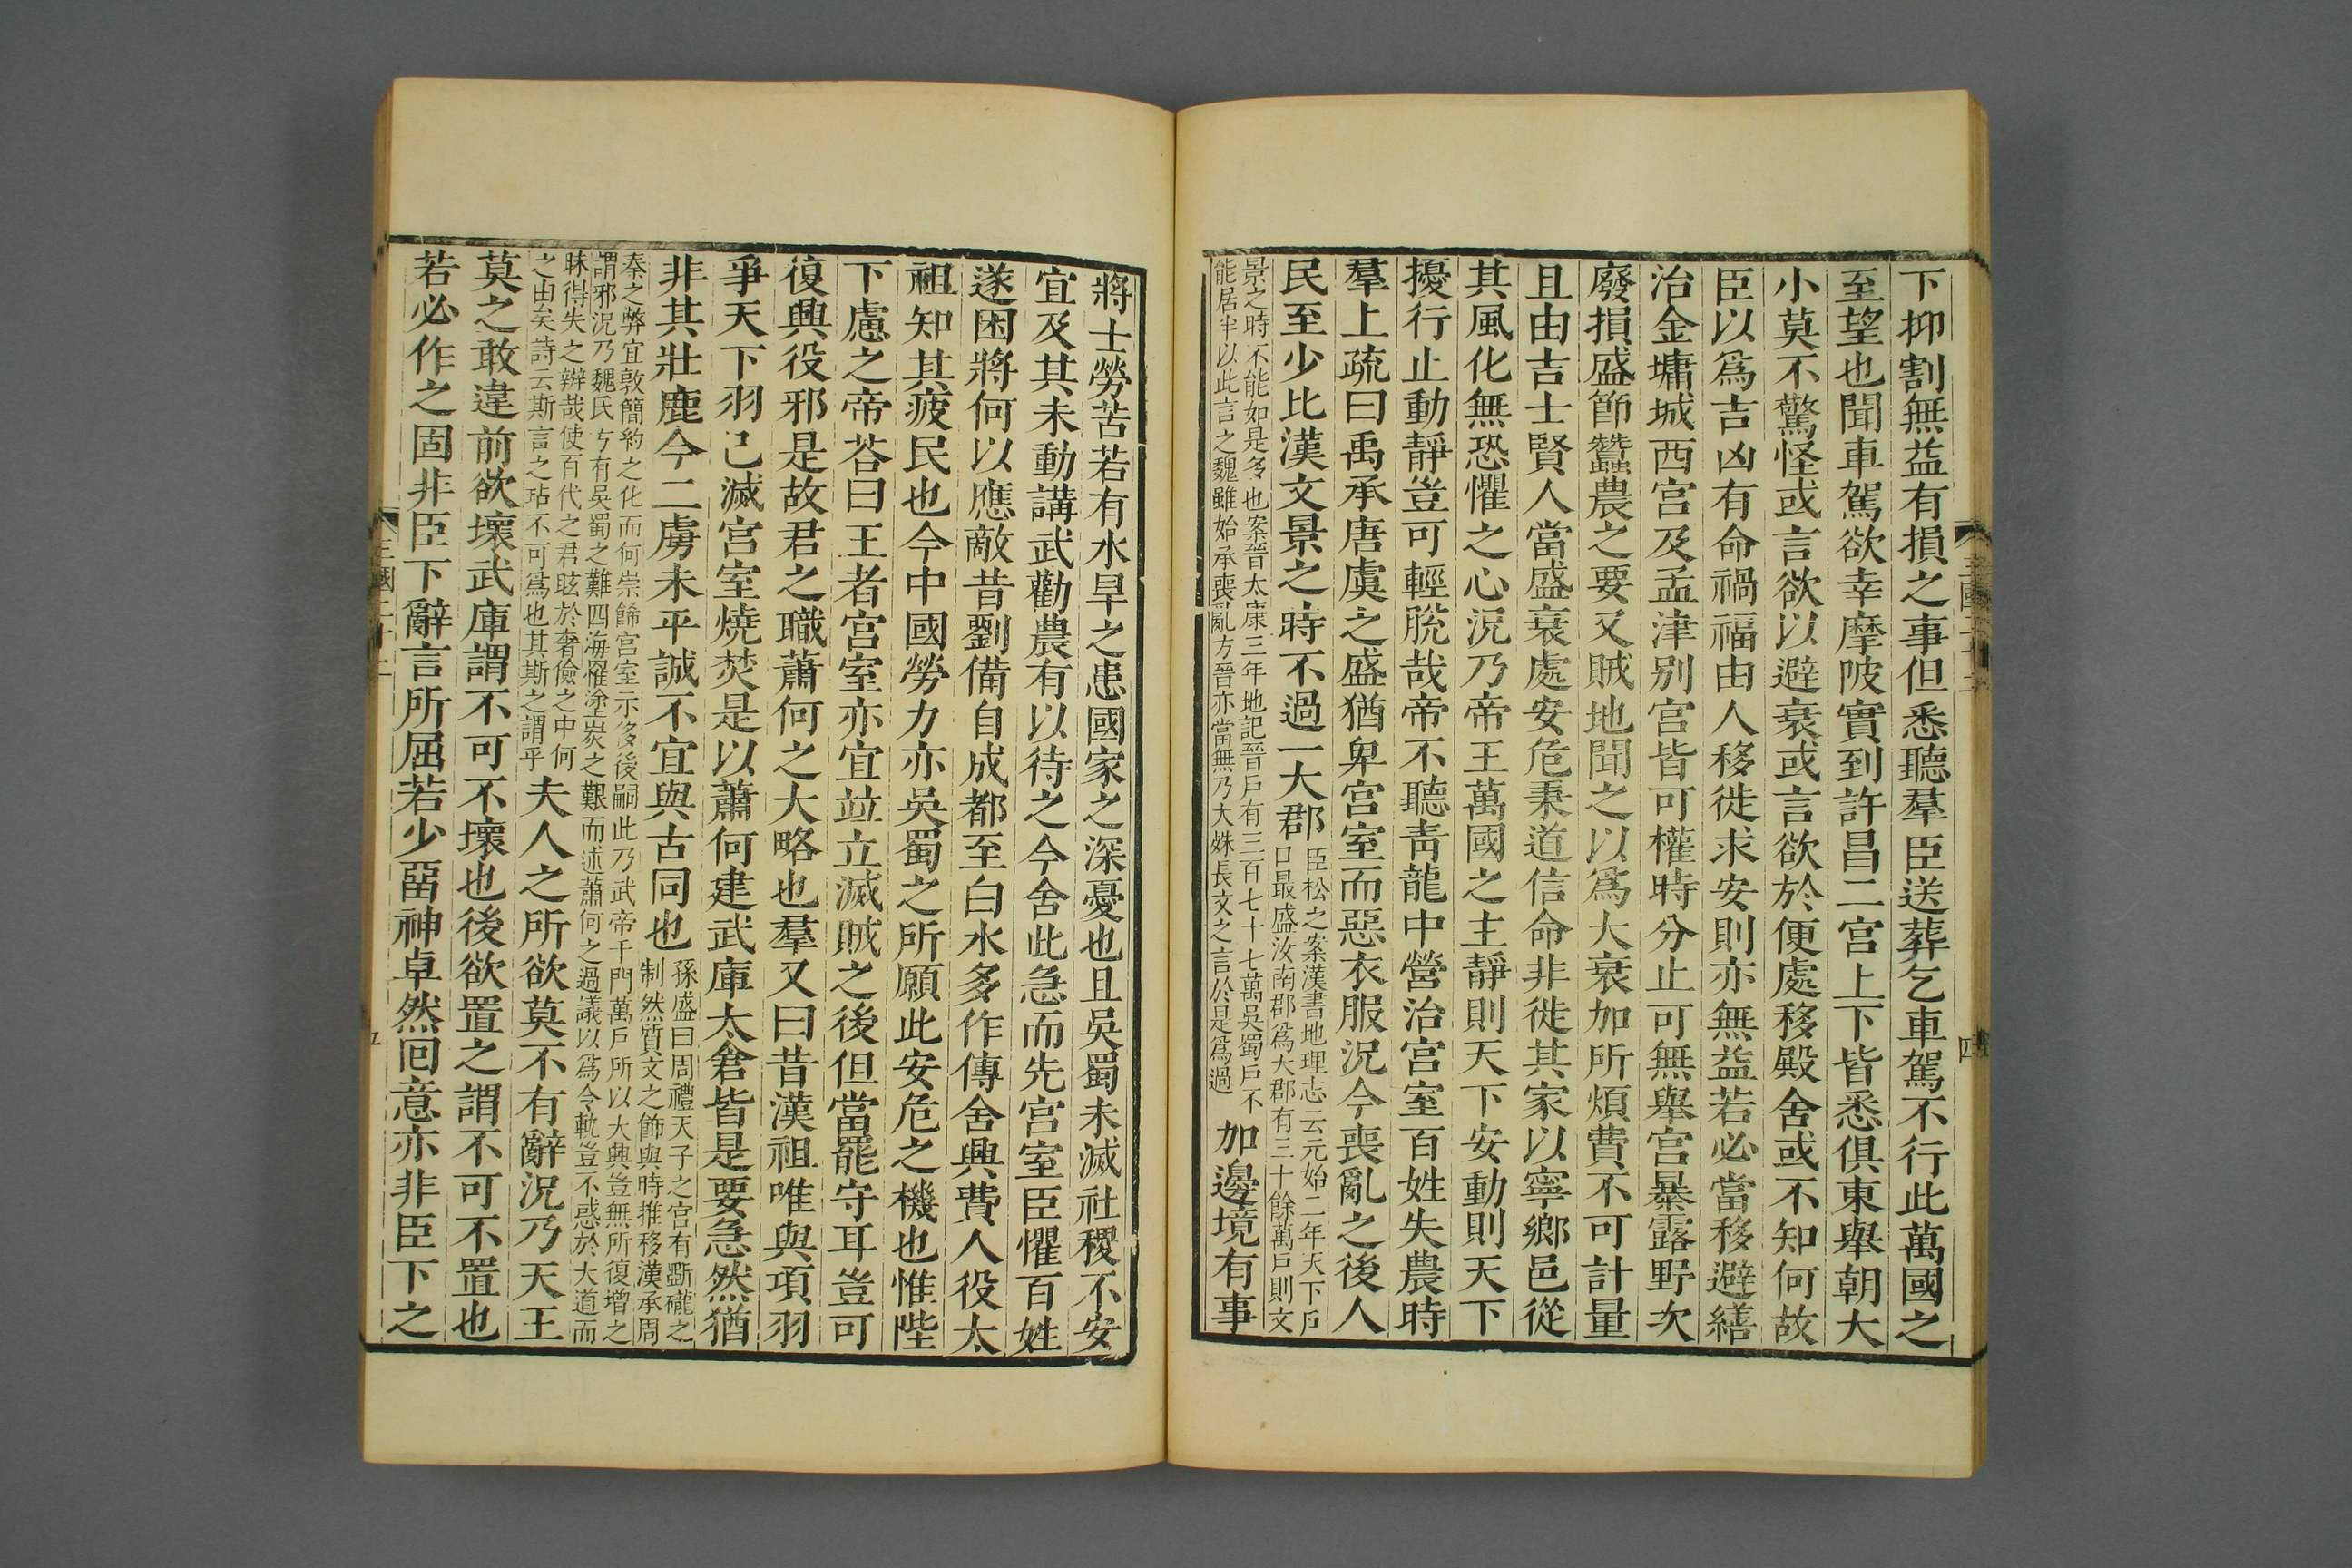 下抑割無益有損之事但悉聽羣臣送葬乞車駕不行此萬國之
至望也聞車駕欲幸摩陂實到許昌二宮上下皆悉俱東舉朝大
小莫不驚怪或言欲以避衰或言欲於便處移殿舍或不知何故
臣以爲吉凶有命禍福由人移徙求安則亦無益若必當移避繕
治金墉城西宮及孟津別宮皆可權時分止可無舉宮暴露野次
廢損盛節蠶農之要又賊地聞之以爲大衰加所煩費不可計量
且由吉士賢人當盛衰處安危秉道信命非徙其家以寧鄉邑從
其風化無恐懼之心況乃帝王萬國之主靜則天下安動則天下
擾行止動靜豈可輕脫哉帝不聽青龍中營治宮室百姓失農時
羣上疏曰禹承唐虞之盛猶卑宮室而惡衣服況今喪亂之後人
民至少比漢文景之時不過一大郡
臣松之案漢書地理志云元始二年天下戶
口最盛汝南郡爲大郡有三十餘萬戶則文
景之時不能如是多也案晉太康三年地記晉戶有三百七十七萬吳蜀戶不
能居半以此言之魏雖始承喪亂方晉亦當無乃大殊長文之言於是爲過
加邊境有事
將士勞苦若有水旱之患國家之深憂也且吳蜀未滅社稷不安
宜及其未動講武勸農有以待之今舍此急而先宮室臣懼百姓
遂困將何以應敵昔劉備自成都至白水多作傳舍興費人役太
祖知其疲民也今中國勞力亦吳蜀之所願此安危之機也惟陛
下慮之帝荅曰王者宮室亦宜竝立滅賊之後但當罷守耳豈可
復興役邪是故君之職蕭何之大略也羣又曰昔漢祖唯與項羽
爭天下羽已滅宮室燒焚是以蕭何建武庫太倉皆是要急然猶
非其壯麗今二虜未平誠不宜與古同也
孫盛曰周禮天子之宮有斲礲之
制然質文之飾與時推移漢承周
秦之弊宜敦簡約之化而何崇飾宮室示侈後嗣此乃武帝千門萬戶所以大興豈無所復增之
謂邪況乃魏氏方有吳蜀之難四海罹塗炭之艱而述蕭何之過議以爲令軌豈不惑於大道而
昧得失之辨哉使百代之君眩於奢儉之中何
之由矣詩云斯言之玷不可爲也其斯之謂乎
夫人之所欲莫不有辭況乃天王
莫之敢違前欲壞武庫謂不可不壞也後欲置之謂不可不置也
若必作之固非臣下辭言所屈若少留神卓然回意亦非臣下之
三國二十二
四
三國二十二
五